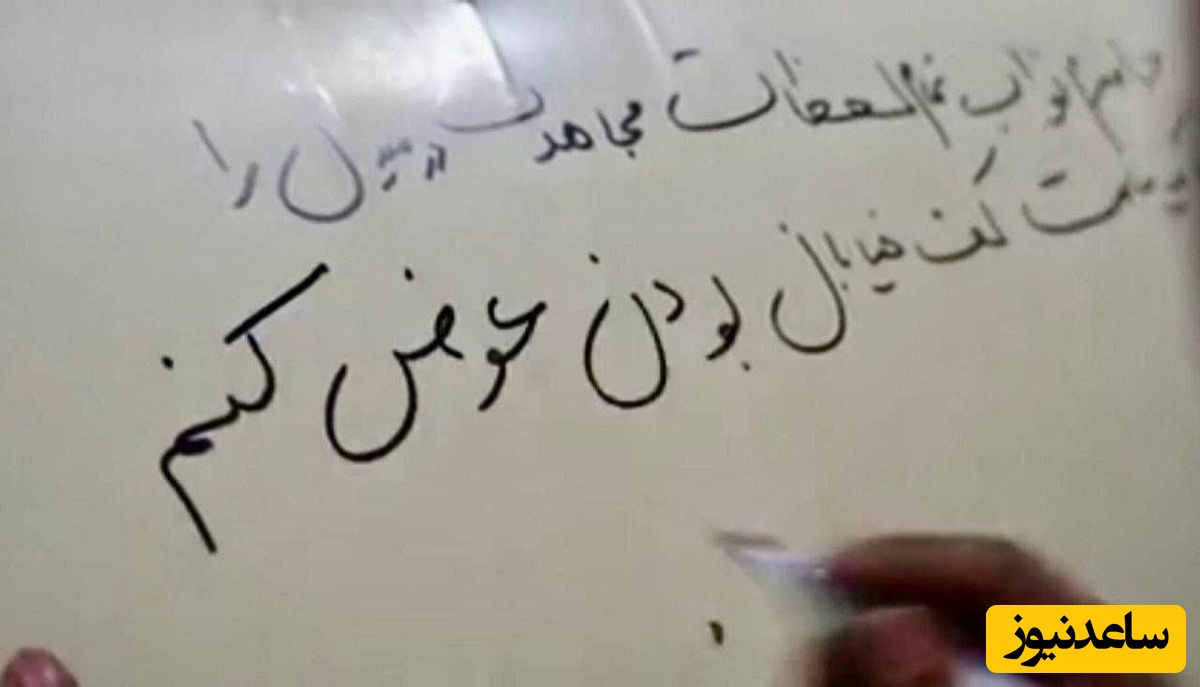 ثواب تمام لحظات مجاهدت را
کف خیابان بودن عوض کنم
ساعدنیوز